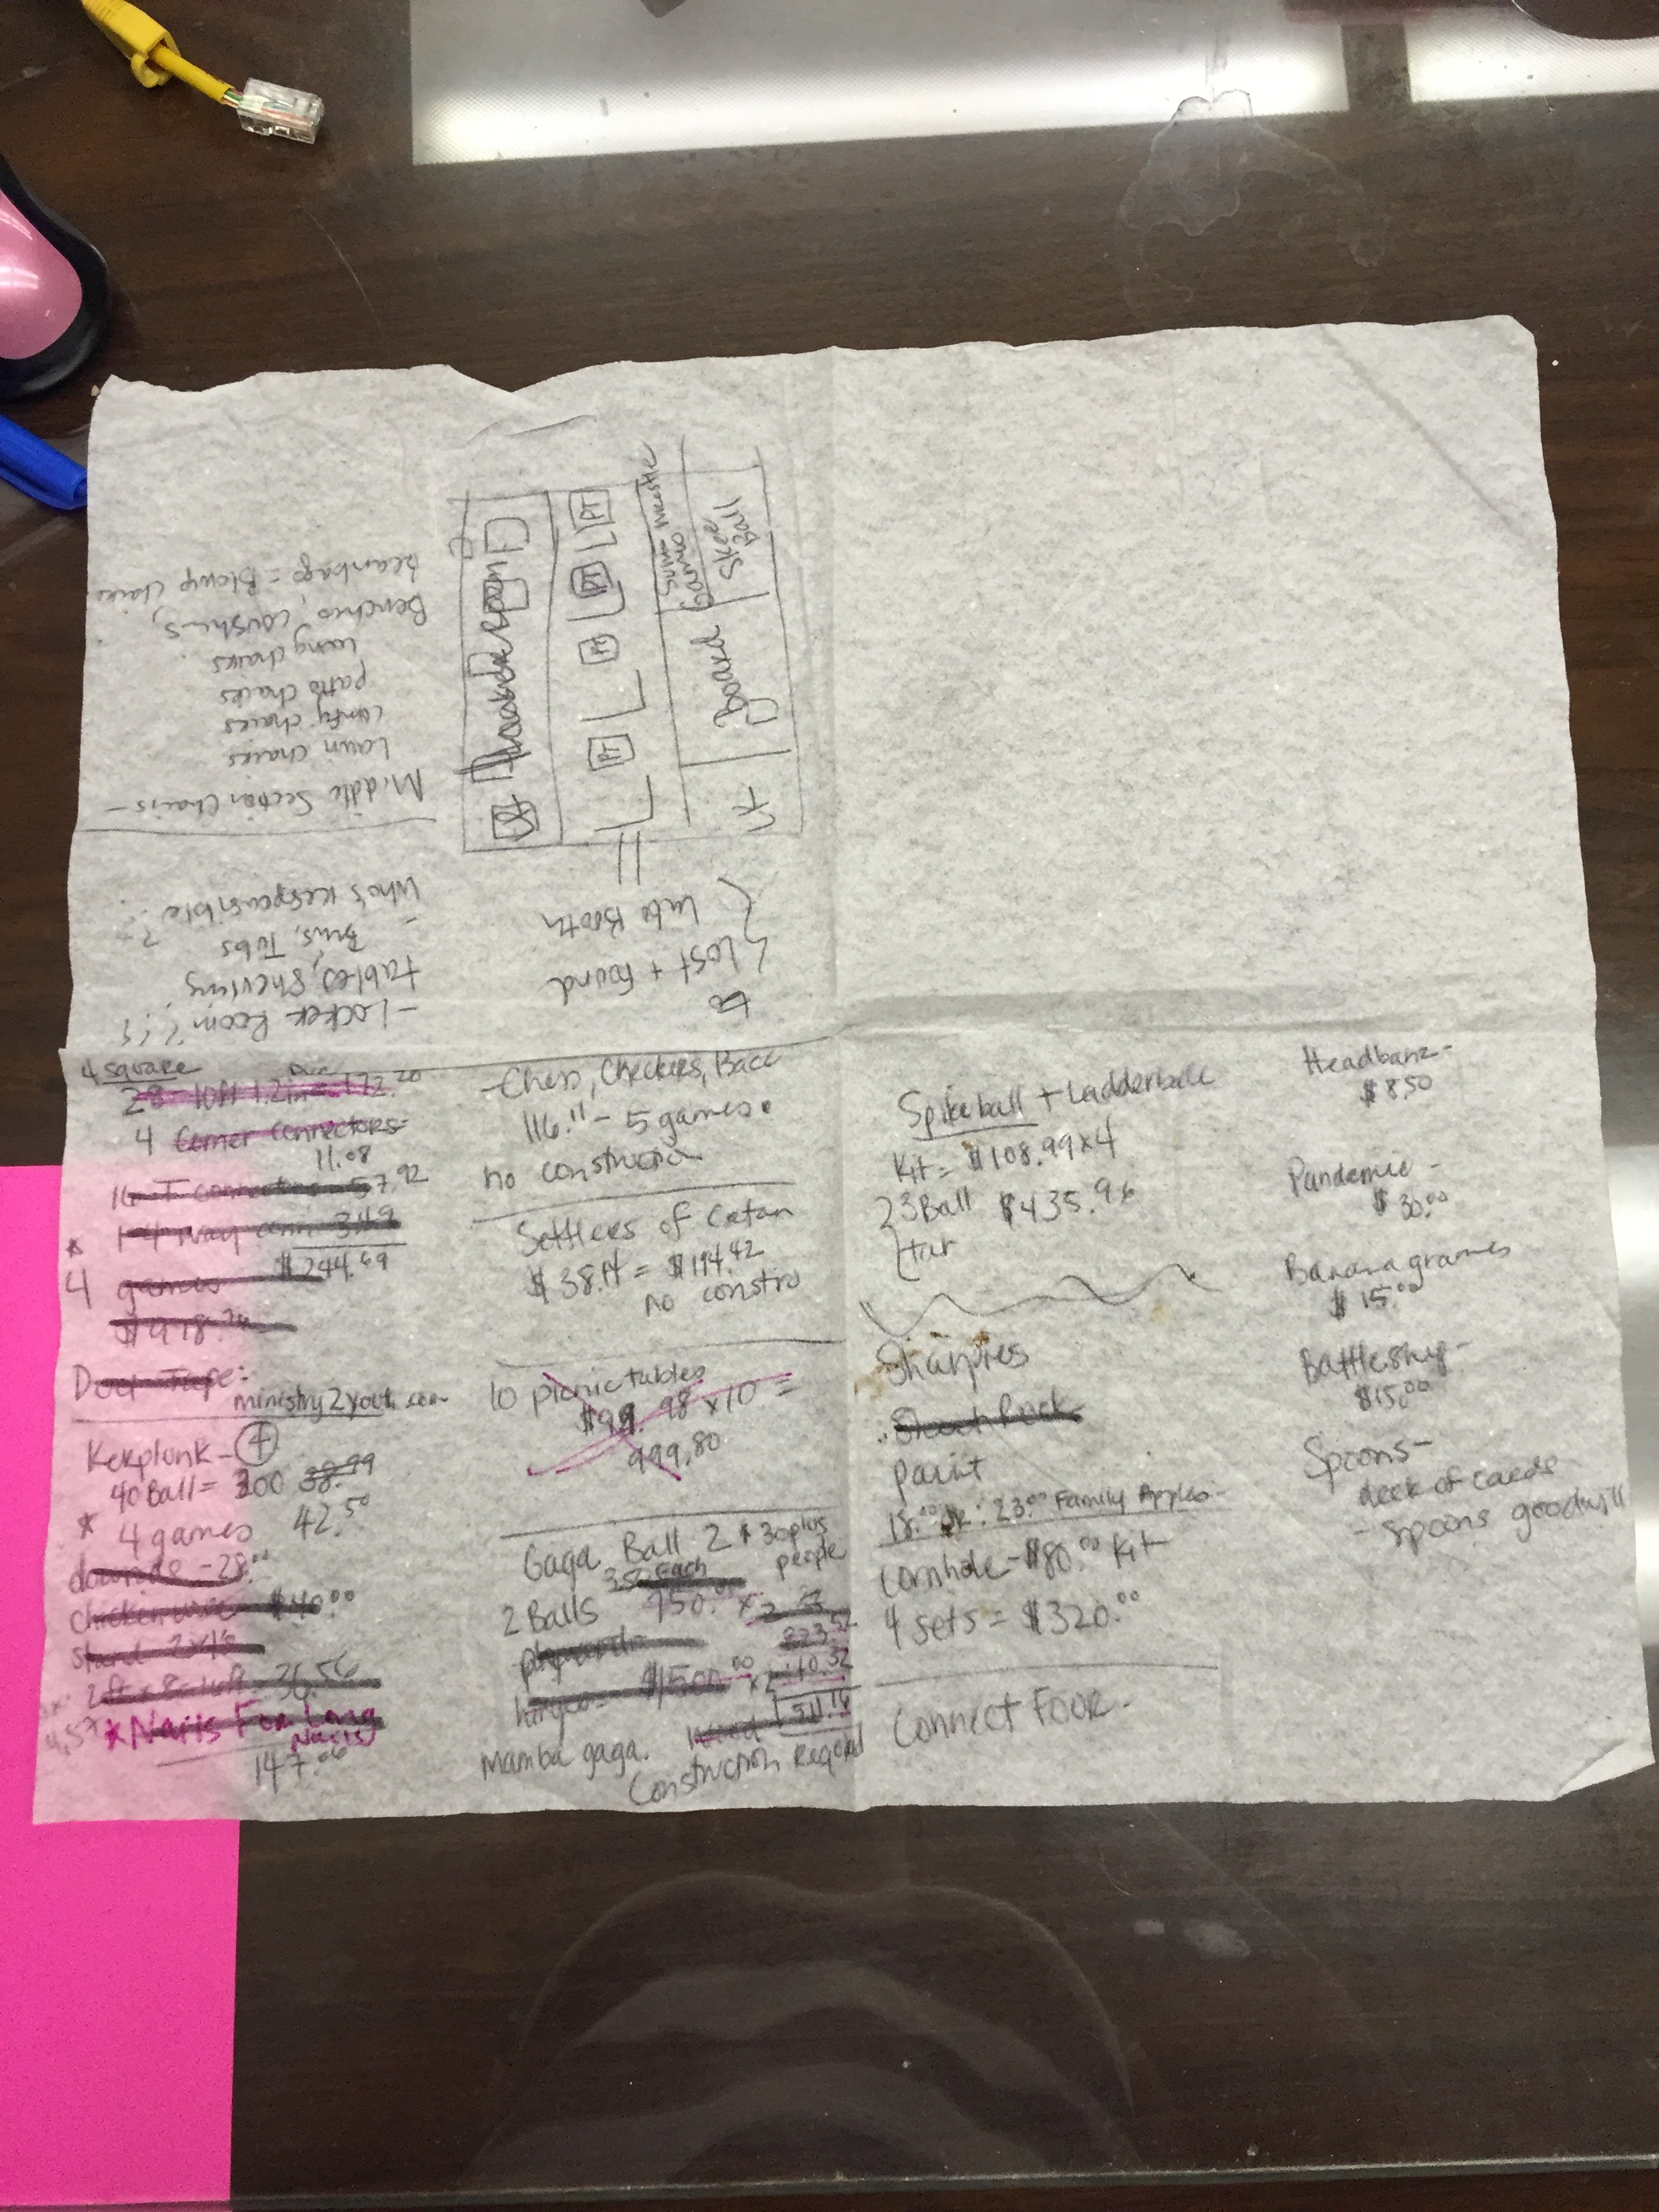 4 square
28 10ft 1.2in = 172.20
4 Corner connectors =
11.08
16 T connectors 57.92
1 4 way conn 3.49
$244.69
* 4 games
$978.76
Duct Tape:
ministry2youth.com
Kerplunk - 4
40 Ball = 200 38.99
* 4 games 42.50
dowrods - 28.00
chicken wire $40.00
stand 2x4's
36.56
* Nails For Long
Nails
147.06
- Chess, Checkers, Bacc
116.11 - 5 games
no construcion
Settlers of Catan
= $194.42
no constro
10 picnic tables
$99.98 x 10 =
999.80
Gaga Ball 2 * 30 plus
people
350 Each
2 Balls 750.00 x 2
plywood -
hinges = $1500.00
Mamba gaga.
Construction Required
Spikeball + Ladderball
Kit = $108.99 x 4
23 Ball $435.96
tar
Sharpies
paint
18.00 Jr. : 23.00 Family Apples -
Cornhole - $80.00 Kit
4 sets = $320.00
Connect Four.
Headbanz -
$8.50
Pandemic -
$30.00
Bananagrames
$15.00
Battleship -
$15.00
Spoons -
deck of cards
- spoons goodwill
- Locker Room ? ! ?
tables, shelving
Bins, Tubs
- Who's Responsible ?
Middle Section Chairs -
Lawn chairs
comfy chairs
patio chairs
loung chairs
Benches, coushins,
beanbags = Blowup chairs
Lost + found
Info Booth
PT
PT
PT
PT
Board Games
Skee
Ball